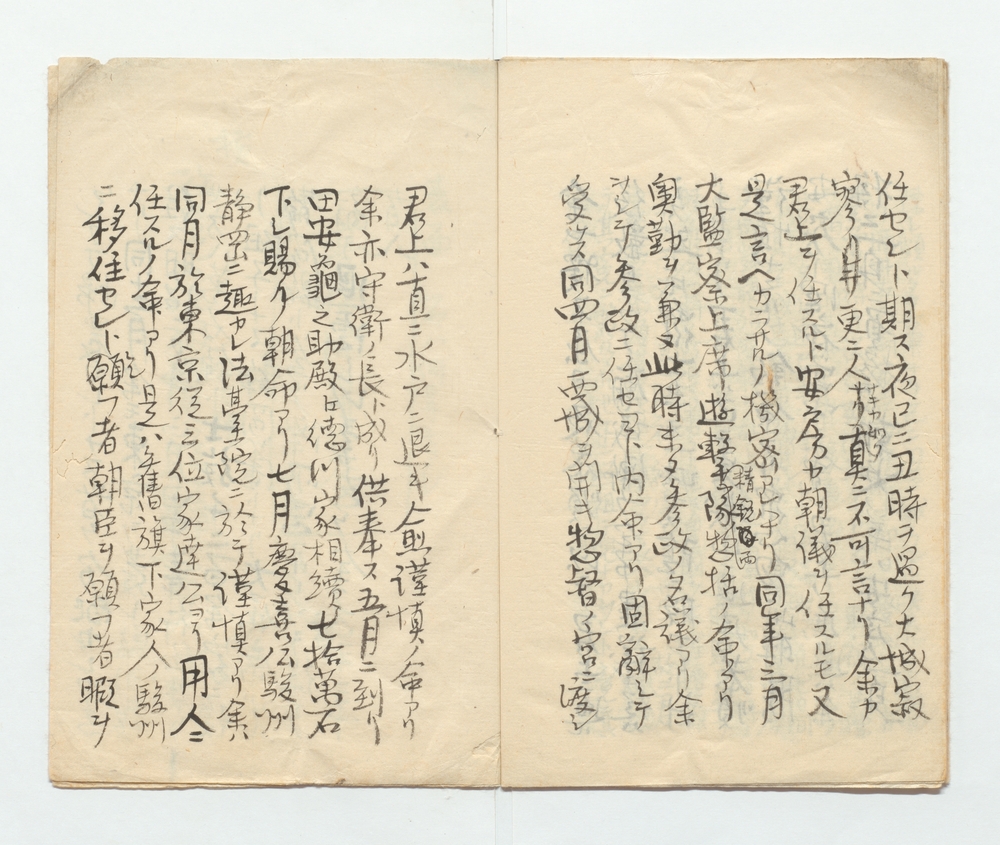 任セント期ス夜已ニ丑時ヲ過ク大城寂
寥タリ更ニ人ナキカ如ク真ニ不可言ナリ余カ
君上ヲ任スルト安房カ朝儀ヲ任スルモ又
是言ヘカラサルノ機密アレハナリ同年三月
大監察上席遊撃隊精鋭隊両惣括ノ命アリ
奥勤ヲ兼又此時ニ又参政ノ名議アリ余
ヲシテ参政ニ任セヨト内命アリ固辞シテ
受ケス同四月西城ヲ開キ惣督ノ宮ニ渡シ
君上ハ直ニ水戸ニ退キ愈謹慎ノ命アリ
余亦守衛ノ長ト成リ供奉ス五月ニ到リ
田安亀之助殿ヒ徳川家相続七拾萬石
下シ賜ルノ朝命アリ七月慶喜公駿州
静岡ニ趣カレ法臺院ニ於テ謹慎アリ余ハ
同月於東京従三位家達公ヨリ用人ニ
任スルノ命アリ是ハ舊旗下家人ノ駿州
ニ移住セント願フ者朝臣ヲ願フ者暇ヲ